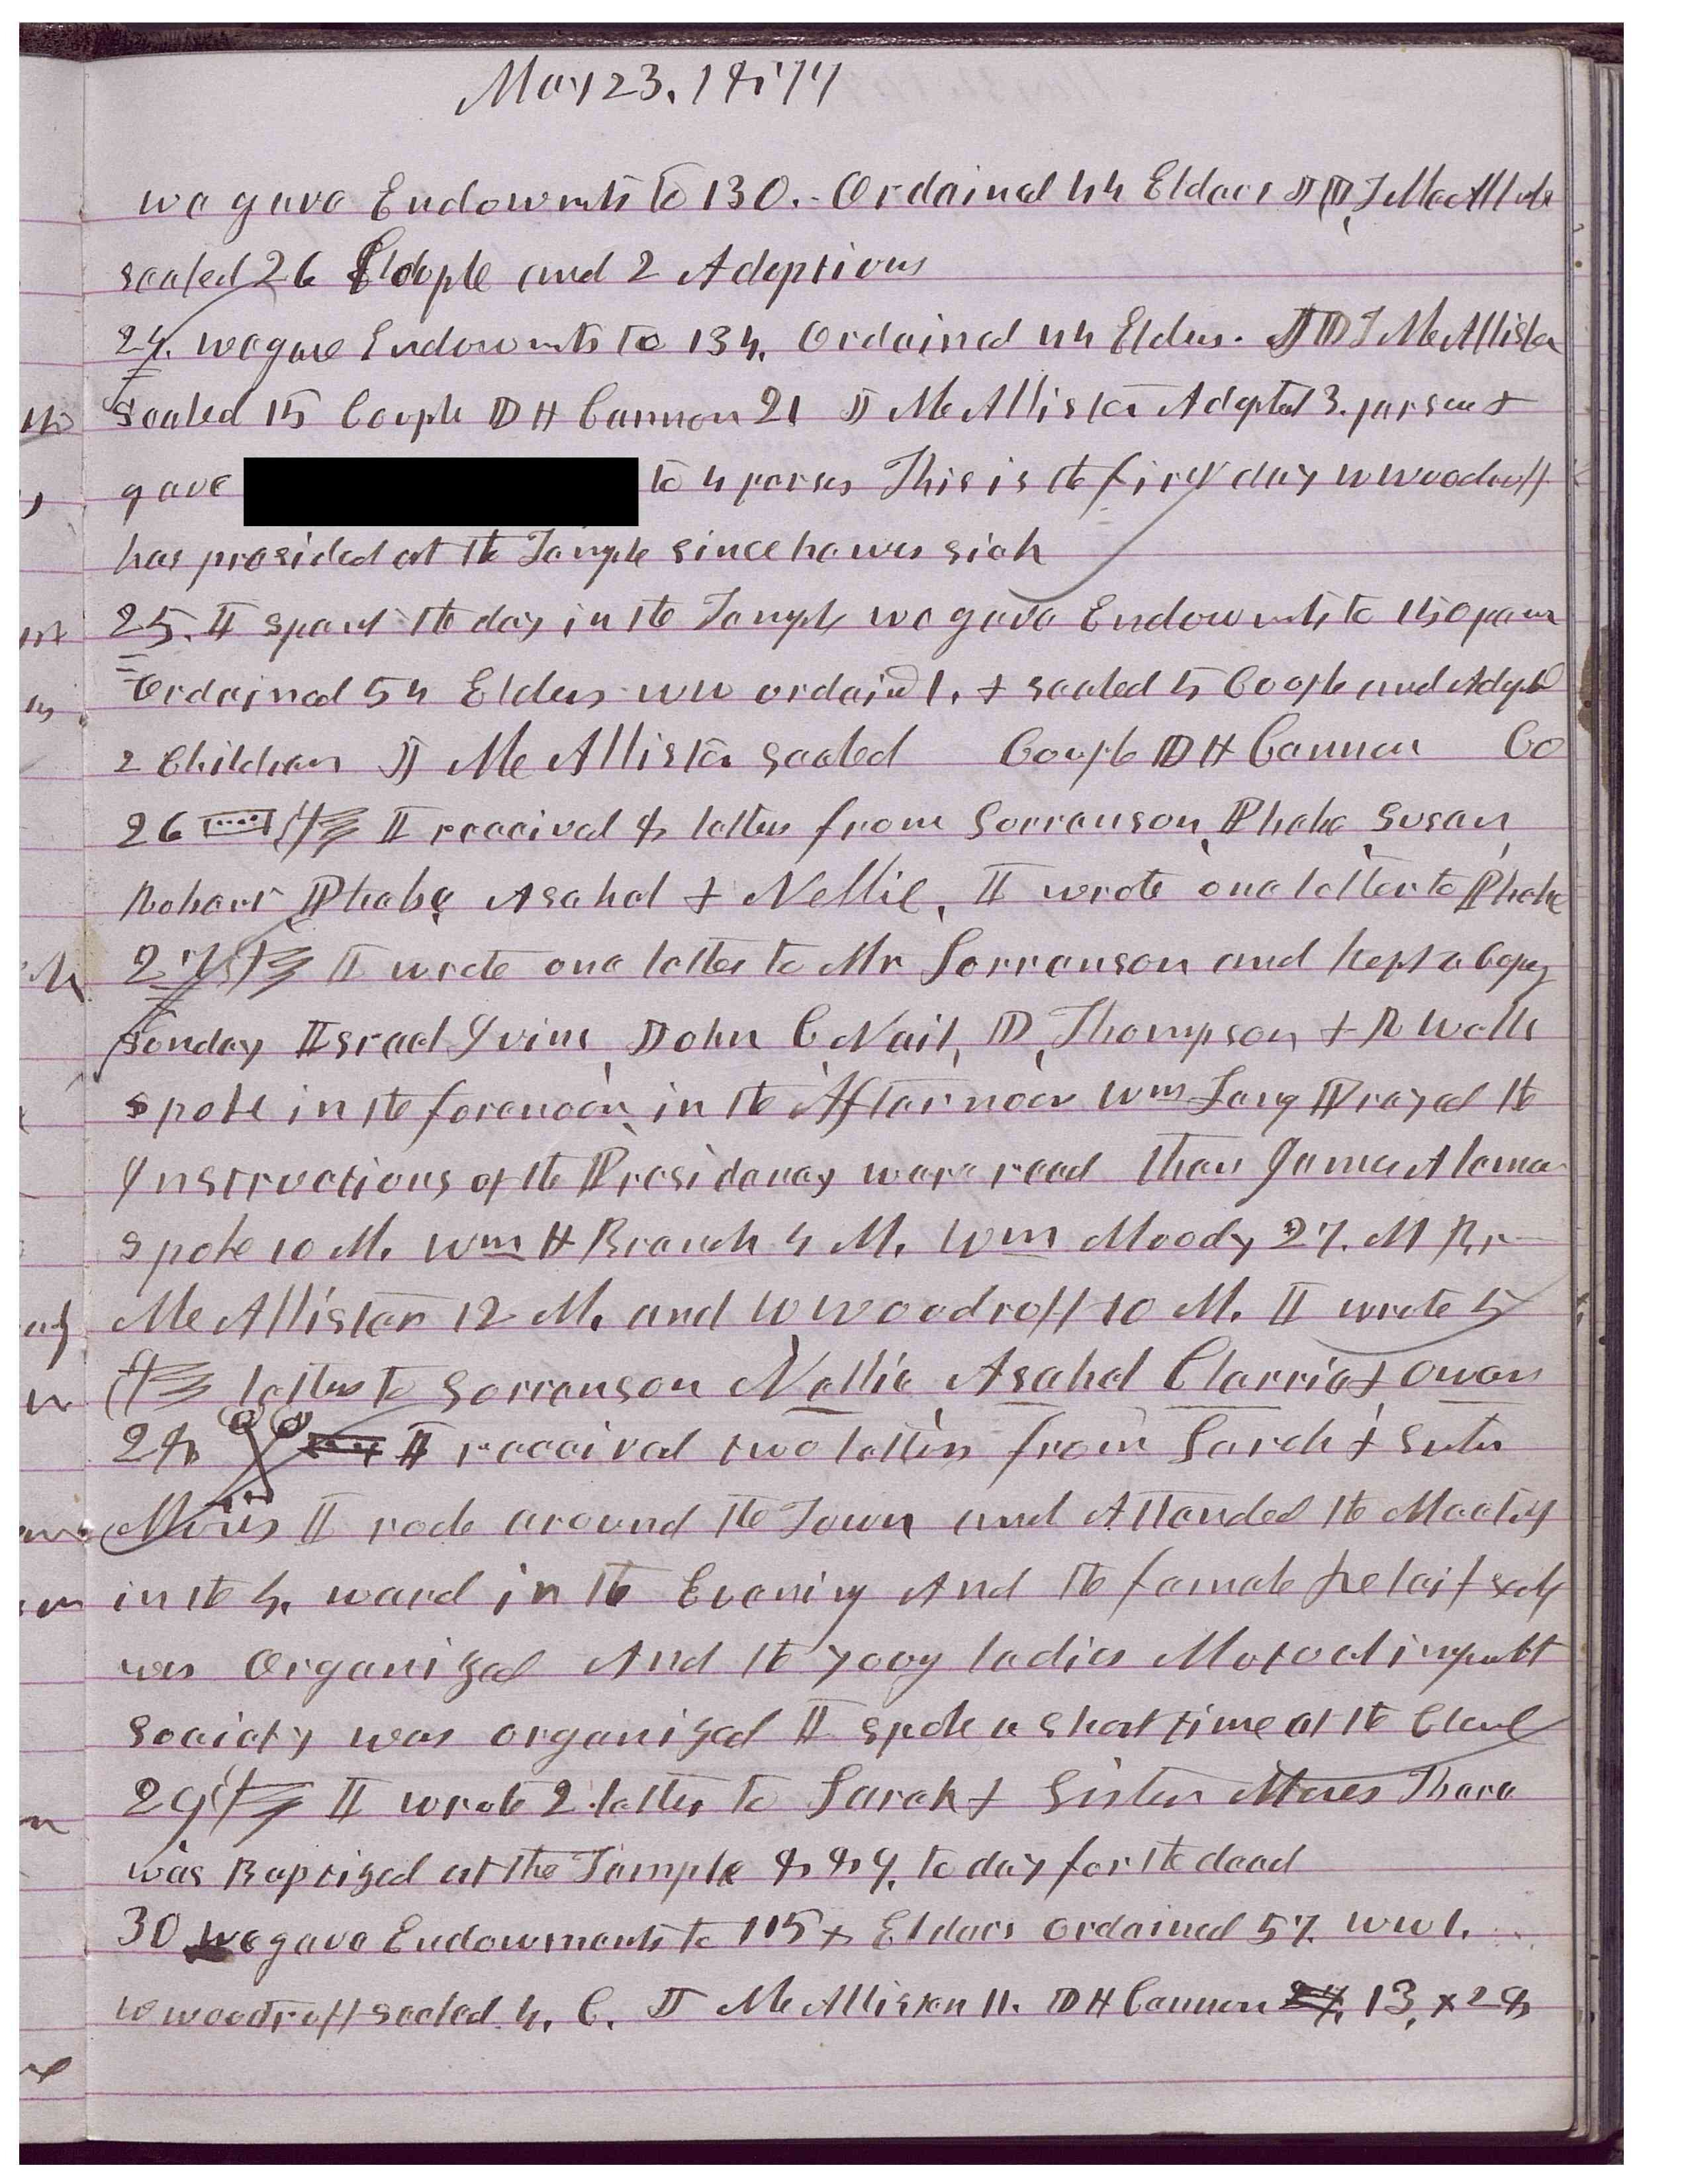 May 23, 1877
we gave Endowmts to 130. Ordained 44 Elders J D T McAllister
sealed 26 Couple and 2 Adoptions
24. we gave Endowmts to 134. Ordained 44 Elders. J D T McAllister
Sealed 15 Couple D H Cannon 21 J McAllister Adopted 3. persons +
gave to 4 persons This is the first day W Woodruff
has presided at the Temple since he was sick
25. I spent the day in the Temple we gave Endowmts to 150 persons
Ordained 54 Elders WW ordaind 1. + sealed 5 Couple and Adopted
2 Children J McAllister sealed Couple D H Cannon Co
26 I received 8 letters from Sorrenson, Phebe, Susan,
Robert Phebe, Asahel + Nellie, I wrote one letter to Phebe
27 I wrote one letter to Mr Sorrenson and kept a Copy
Sunday Israel Ivins, John C Nail, D, Thompson + R Wells
spoke in the forenoon, in the Afternoon Wm Lang Prayed the
Instructions of the Presidency were read then James
spoke 10 M. Wm H Branch 4 M. Wm Moody 27. M Br
McAllister 12 M. and W Woodruff 10 M. I wrote 5
letters to Sorrenson Nellie, Asahel Clarrie, + Owen
28 I received two letters from Sarah + Sister
Moses I rode around the Town and Attended the Meeting
in the 4. ward in the Evening And the female Relief Socty
was Organized And the young ladies Mutual improvmt
Society was organized I spoke a short time at the Close
29 I wrote 2 letters to Sarah + Sister Moses There
was Baptized at the Temple 889, to day for the dead
30 we gave Endowments to 115 + Elders ordained 57. WW 1.
W Woodruff sealed 4, C. J McAllister 11. D H Cannon 13, × 28